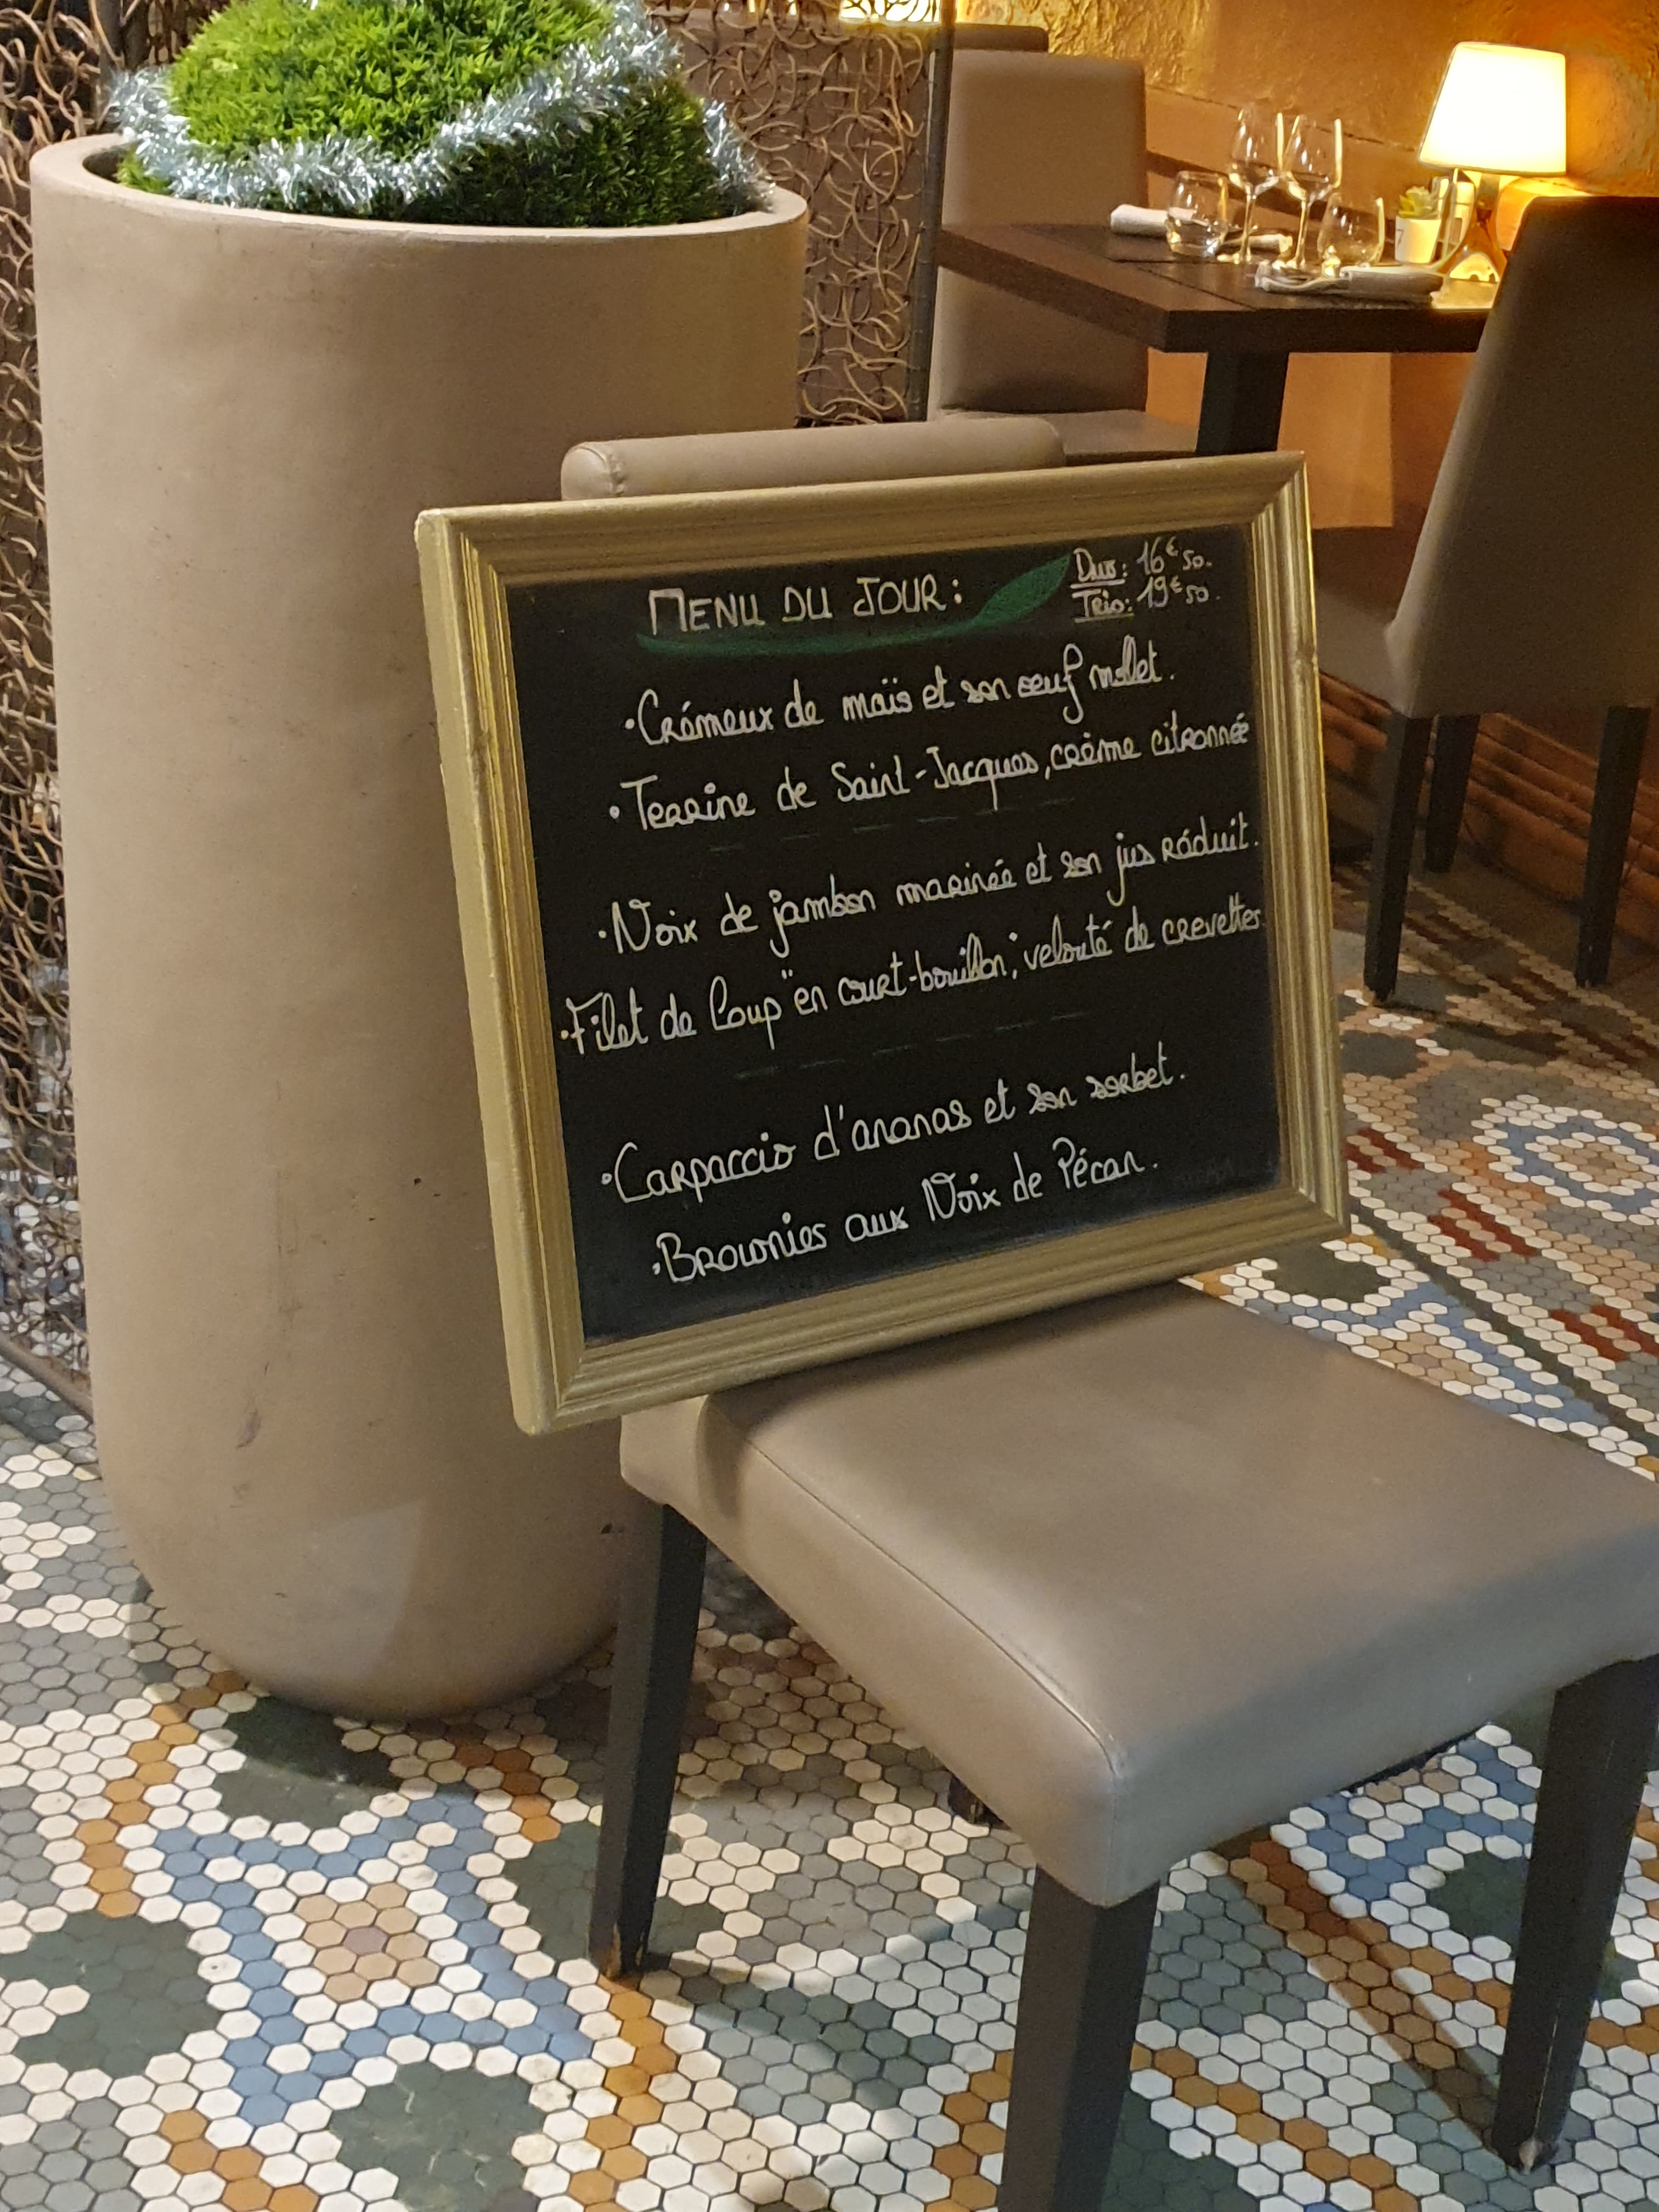 MENU DU JOUR:
Duo: 16€50.
Trio: 19€50.
•Crémeux de maïs et son oeuf mollet.
•Terrine de Saint-Jacques, crème citronnée
•Noix de jambon marinée et son jus réduit.
•Filet de loup "en court-bouillon", velouté de crevettes.
•Carpaccio d'ananas et son sorbet.
•Brownies aux Noix de Pécan.
7